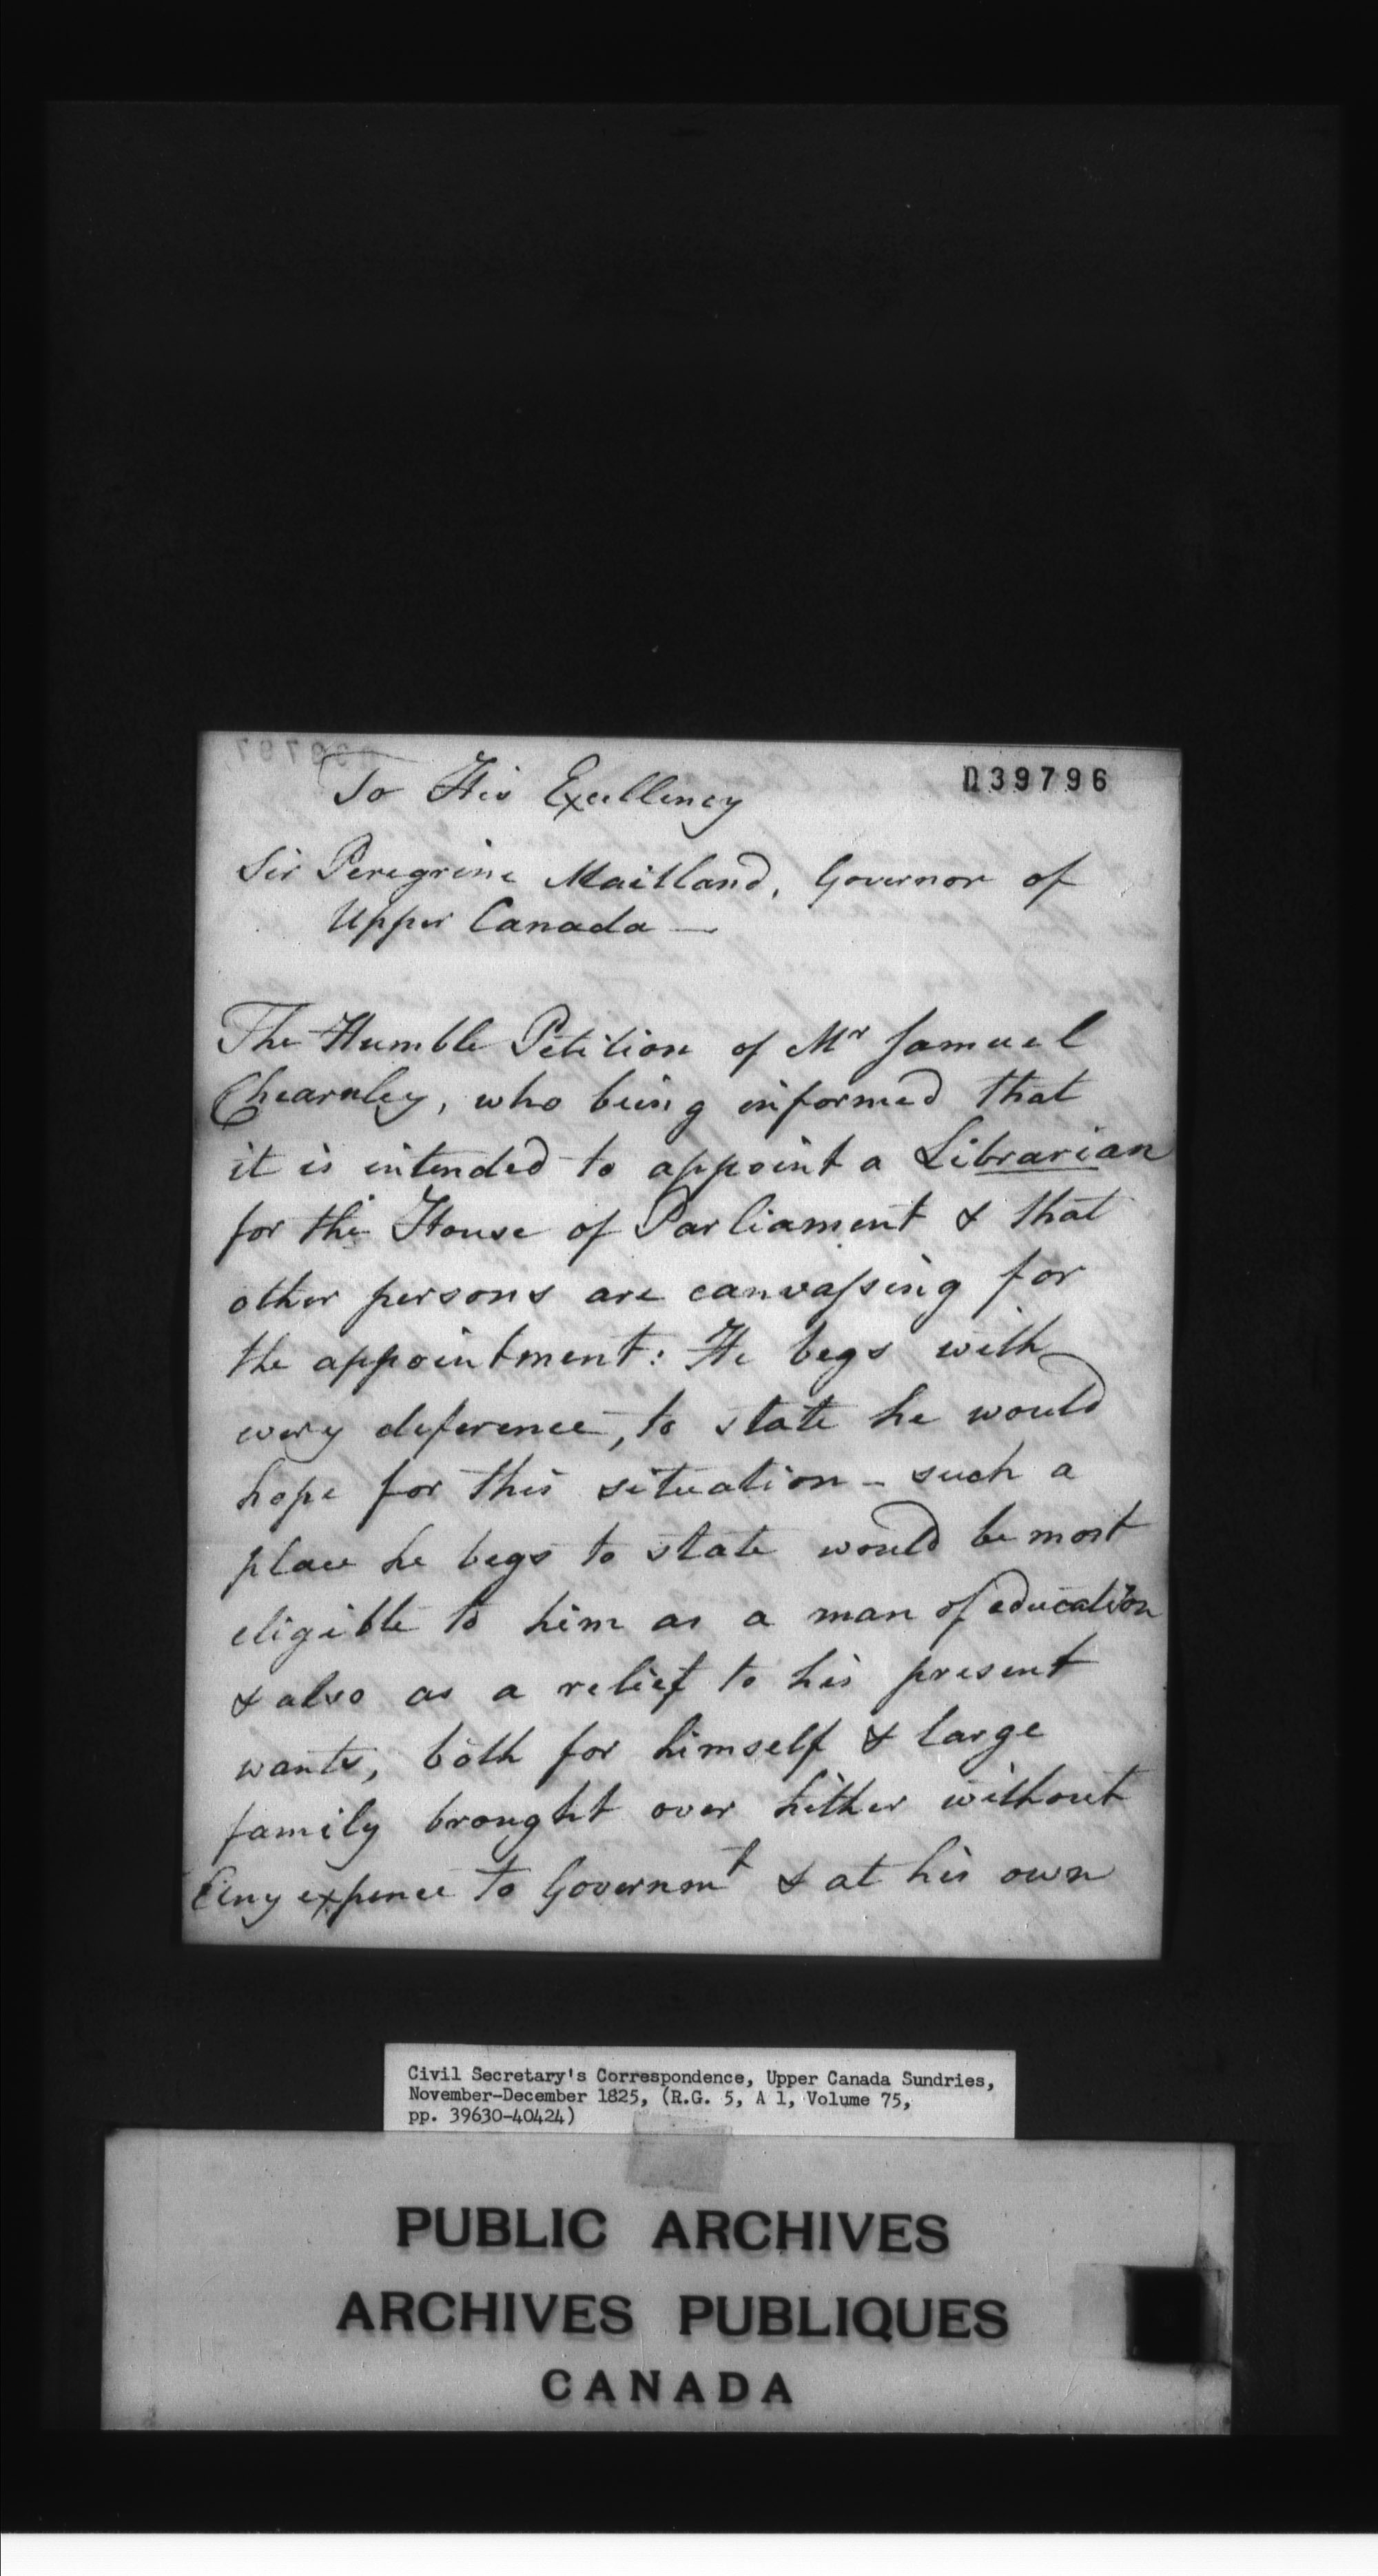 To His Excellency
039796
Sir Peregrine Maitland, Governor of
Upper Canada —
The Humble Petition of Mr Samuel
Chearnley, who being informed that
it is intended to appoint a Librarian
for the House of Parliament & that
other persons are canvassing for
the appointment: He begs with
every deference, to state he would
hope for this situation - such a
place he begs to state would be most
eligible to him as a man of education
& also as a relief to his present
wants, both for himself & large
family brought over hither without
Any expence to Governmt & at his own
Civil Secretary's Correspondence, Upper Canada Sundries,
November-December 1825, (R.G. 5, A 1, Volume 75,
pp. 39630-40424)
PUBLIC ARCHIVES
ARCHIVES PUBLIQUES
CANADA